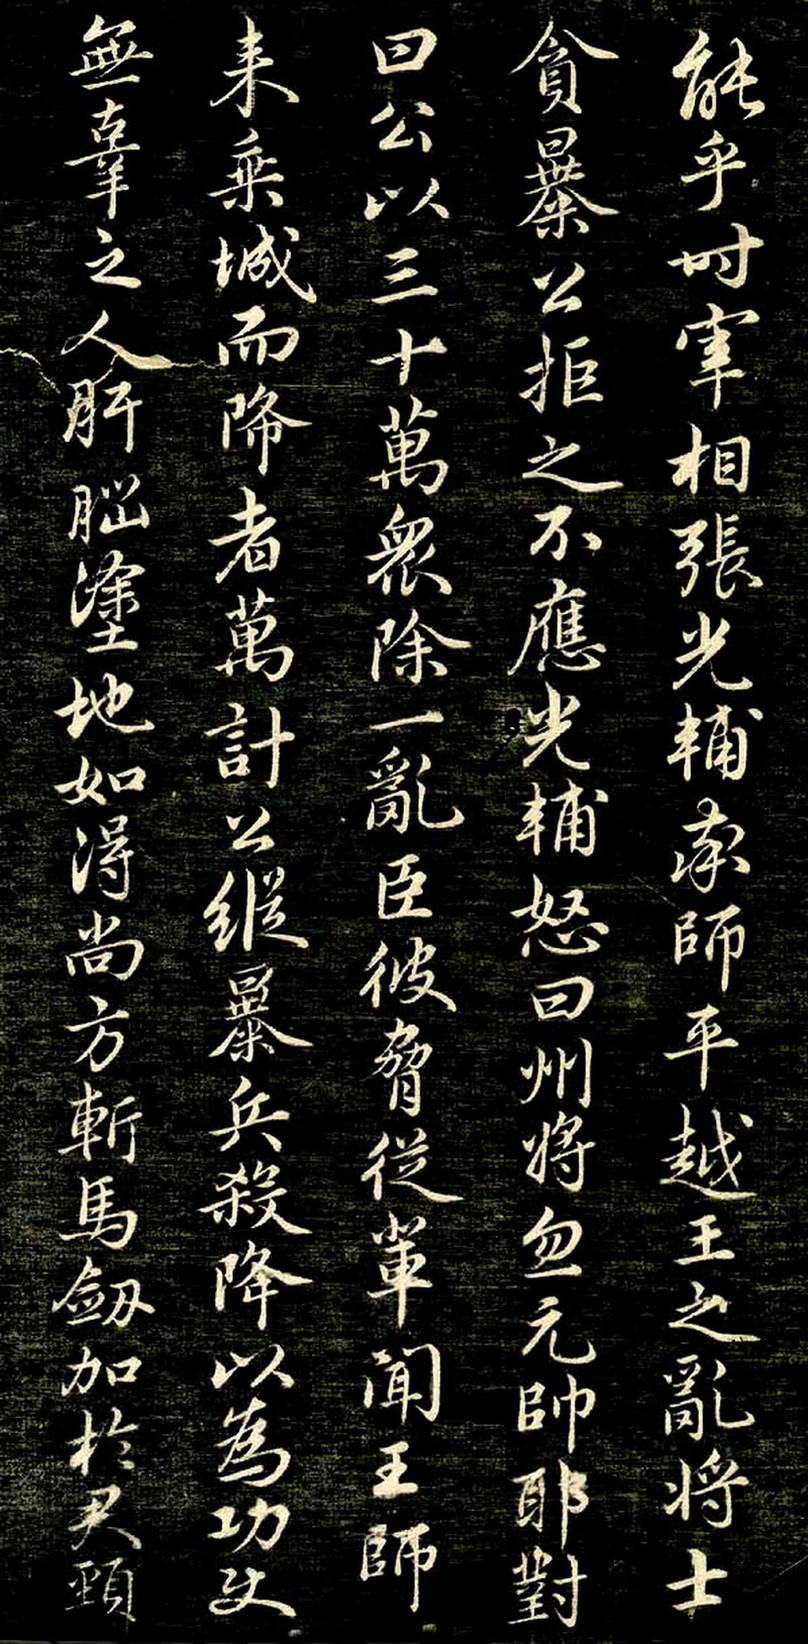 能乎时宰相張光輔率師平越王之亂将士
貪暴公拒之不應光輔怒曰州将忽元帥耶對
曰公以三十萬衆除一亂臣彼脅從輩聞王師
来乗城而降者萬計公縱暴兵殺降以為功使
無辜之人肝腦塗地如得尚方斬馬劔加於君頸